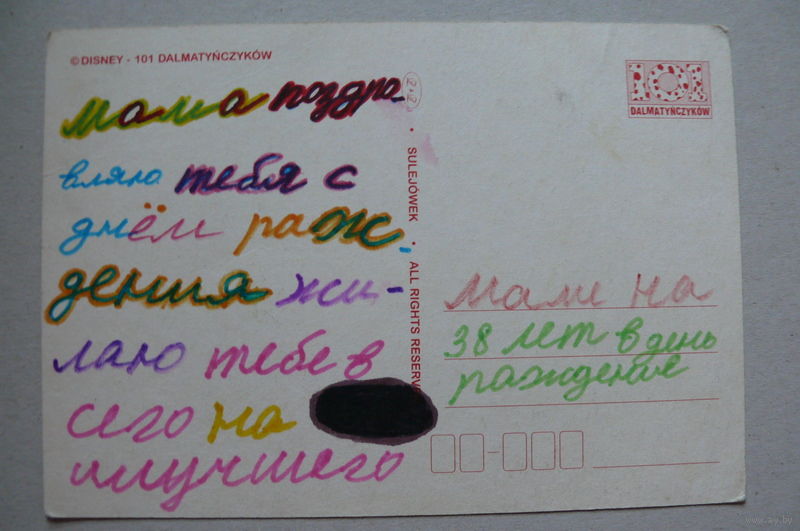 © DISNEY - 101 DALMATYŃCZYKÓW
101
DALMATYŃCZYKÓW
Мама поздра-
вляю тебя с
днём раж-
дения жи-
лаю тебе в
сего на
илучшего
SULEJÓWEK • ALL RIGHTS RESERV
Маме на
38 лет в день
рождение
www.ay.by